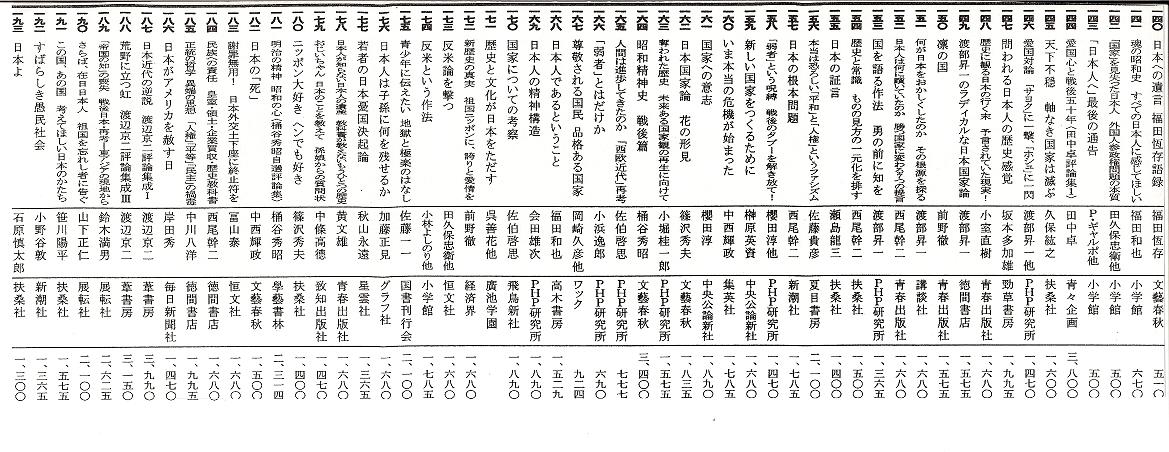 一四〇 日本への遺言 福田恆存語録 福田恆存 文藝春秋 五一〇
一四一 魂の昭和史 すべての日本人に感じてほしい 福田和也 小学館 六七〇
一四二 「国家」を見失った日本人 外国人参政権問題の本質 田久保忠衛他 小学館 一、五〇〇
一四三 「日本人へ」最後の通告 P・ギャルポ他 小学館 五〇〇
一四四 愛国心と戦後五十年(田中卓評論集1) 田中卓 青々企画 三、八〇〇
一四五 天下不穏 軸なき国家は滅ぶ 久保紘之 扶桑社 一、六〇〇
一四六 愛国対論 「サヨク」に一撃、「ホシュ」に一閃 渡部昇一他 PHP研究所 一、四〇〇
一四七 問われる日本人の歴史感覚 坂本多加雄 勁草書房 二、四〇〇
一四八 歴史に観る日本の行く末 予言されていた現実! 小室直樹 青春出版社 一、六〇〇
一四九 渡部昇一のラディカルな日本国家論 渡部昇一 徳間書店 一、五〇〇
一五〇 凛の国 前野徹 青春出版社 一、五〇〇
一五一 何が日本をおかしくしたのか その根源を探る 渡部昇一 講談社 一、五〇〇
一五二 西尾幹二 青春出版社 一、六〇〇
一五三 国を語る作法 勇の前に知を 渡部昇一 PHP研究所 一、三六五
一五四 歴史と常識 ものの見方の一元化を排す 西尾幹二 扶桑社 一、五五〇
一五五 日本の証言 瀬島龍三 扶桑社 一、四〇〇
一五六 本当は恐ろしい「平和」と「人権」というファシズム 佐藤貴彦 夏目書房 二、一〇〇
一五七 日本の根本問題 西尾幹二 新潮社 一、五七五
一五八 「弱者」という呪縛 戦後のタブーを解き放て! 櫻田淳他 PHP研究所 一、四七〇
一五九 新しい国家をつくるために 榊原英資 中央公論新社 一、四七〇
一六〇 いま本当の危機が始まった 中西輝政 集英社 一、六八〇
一六一 国家への意志 櫻田淳 中央公論新社 一、七八五
一六二 日本国家論 花の形見 篠沢秀夫 文藝春秋 一、八三五
一六三 奪われた歴史 未来ある国家観の再生に向けて 小堀桂一郎 PHP研究所 一、五七五
一六四 昭和精神史 戦後篇 桶谷秀昭 文藝春秋 三、四〇〇
一六五 人間は進歩してきたのか 「西欧近代」再考 佐伯啓思 PHP研究所 七七七
一六六 「弱者」とはだれか 小浜逸郎 PHP研究所 六九〇
一六七 尊敬される国民 品格ある国家 岡崎久彦他 ワック 九二四
一六八 日本人であるということ 福田和也 高木書房 一、五二〇
一六九 日本人の精神構造 会田雄次 PHP研究所 一、八九〇
一七〇 国家についての考察 佐伯啓思 飛鳥新社 一、八九〇
一七一 歴史と文化が日本をただす 呉善花他 廣池学園 一、六八〇
一七二 新歴史の真実 祖国ニッポンに、誇りと愛情を 前野徹 経済界 一、五七〇
一七三 反米論を撃つ 田久保忠衛他 恒文社 一、六八〇
一七四 反米という作法 小林よしのり他 小学館 一、七八五
一七五 青少年に伝えたい、地獄と極楽のはなし 佐藤一一 国書刊行会 二、一〇〇
一七六 日本人は子孫に何を残せるか 加藤正見 グラフ社 一、三六五
一七七 若者の日本憂国決起論 秋山永遠 星雲社 一、二六〇
一七八 黄文雄 青春出版社 一、六八〇
一七九 おじいちゃん 日本のことを教えて 孫娘からの質問状 中條高徳 致知出版社 一、四七〇
一八〇 ニッポン大好き ヘンでも好き 篠沢秀夫 扶桑社 一、五〇〇
一八一 明治の精神 昭和の心(桶谷秀昭自選評論集) 桶谷秀昭 學藝書林 二、三一四
一八二 日本の「死」 中西輝政 文藝春秋 一、五〇〇
一八三 謝罪無用! 日本外交土下座に終止符を 冨山泰 恒文社 一、六八〇
一八四 民族への責任 皇室・領土・企業買収・歴史教科書 西尾幹二 徳間書店 一、六八〇
一八五 正統の哲学 異端の思想 「人権」「平等」「民主」の禍毒 中川八洋 徳間書店 一、九九五
一八六 日本がアメリカを赦す日 岸田秀 毎日新聞社 一、四七〇
一八七 日本近代の逆説 渡辺京二評論集成Ⅰ 渡辺京二 葦書房 三、九九〇
一八八 荒野に立つ虹 渡辺京二評論集成Ⅲ 渡辺京二 葦書房 三、一五〇
一八九 鈴木満男 展転社 二、六二五
一九〇 さらば、在日日本人 祖国を忘れし者に告ぐ 山下正仁 展転社 二、一〇〇
一九一 この国、あの国 考えてほしい日本のかたち 笹川陽平 扶桑社 一、五七五
一九二 すばらしき愚民社会 小谷野敦 新潮社 一、三六五
一九三 日本よ 石原慎太郎 扶桑社 一、三〇〇